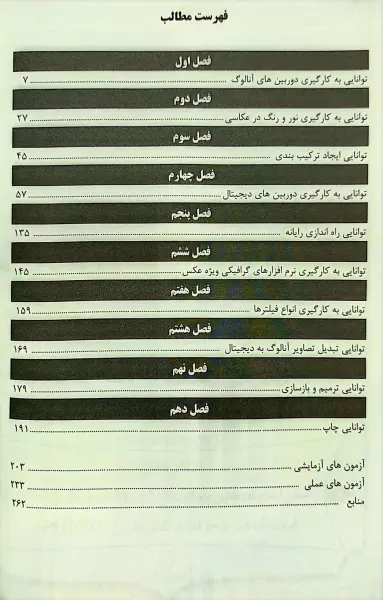 فهرست مطالب
فصل اول
توانایی به کارگیری دوربین های آنالوگ ........ ۷
فصل دوم
توانایی به کارگیری نور و رنگ در عکاسی ........ ۲۷
فصل سوم
توانایی ایجاد ترکیب بندی ........ ۴۵
فصل چهارم
توانایی به کارگیری دوربین های دیجیتال ........ ۵۷
فصل پنجم
توانایی راه اندازی رایانه ........ ۱۳۵
فصل ششم
توانایی به کارگیری نرم افزارهای گرافیکی ویژه عکس ........ ۱۴۵
فصل هفتم
توانایی به کارگیری انواع فیلترها ........ ۱۵۹
فصل هشتم
توانایی تبدیل تصاویر آنالوگ به دیجیتال ........ ۱۶۹
فصل نهم
توانایی ترمیم و بازسازی ........ ۱۷۹
فصل دهم
توانایی چاپ ........ ۱۹۱
آزمون های آزمایشی ........ ۲۰۳
آزمون های عملی ........ ۲۳۳
منابع ........ ۲۶۲